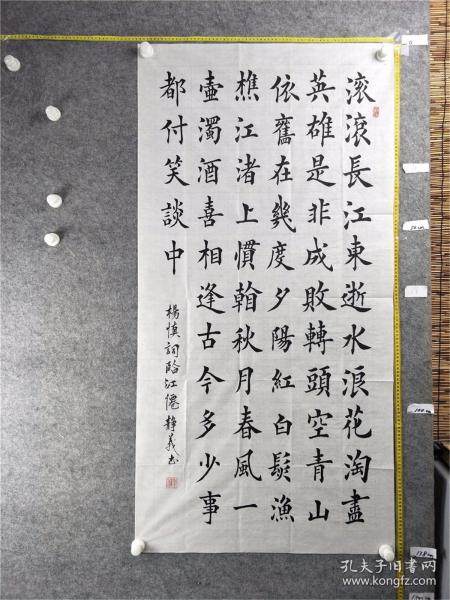 滚滾長江東逝水浪花淘盡
英雄是非成敗轉頭空青山
依舊在幾度夕陽紅白髮漁
樵江渚上慣翰秋月春風一
壺濁酒喜相逢古今多少事
都付笑談中
楊慎詞臨江僊靜義书
孔夫子旧书网
www.kongfz.com